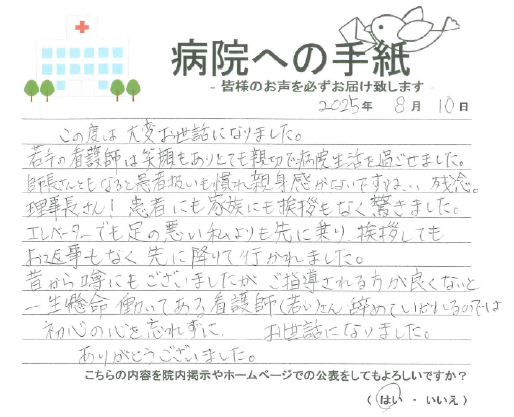 病院への手紙
- 皆様のお声を必ずお届け致します -
2025年 8月 10日
この度は大変お世話になりました。
若手の看護師は笑顔もありとても親切で病院生活を過ごせました。
師長さんともなると患者扱いも慣れ親身感がないですね... 残念。
理事長さん! 患者にも家族にも挨拶もなく驚きました。
エレベーターでも足の悪い私よりも先に乗り 挨拶しても
お返事もなく 先に降りて行かれました。
昔から噂にもございましたが ご指導される方が良くないと
一生懸命 働いてある看護師(若い)さん 辞めていかれるのでは
初心の心を忘れずに お世話になりました。
ありがとうございました。
こちらの内容を院内掲示やホームページでの公表をしてもよろしいですか?
( はい ・ いいえ )